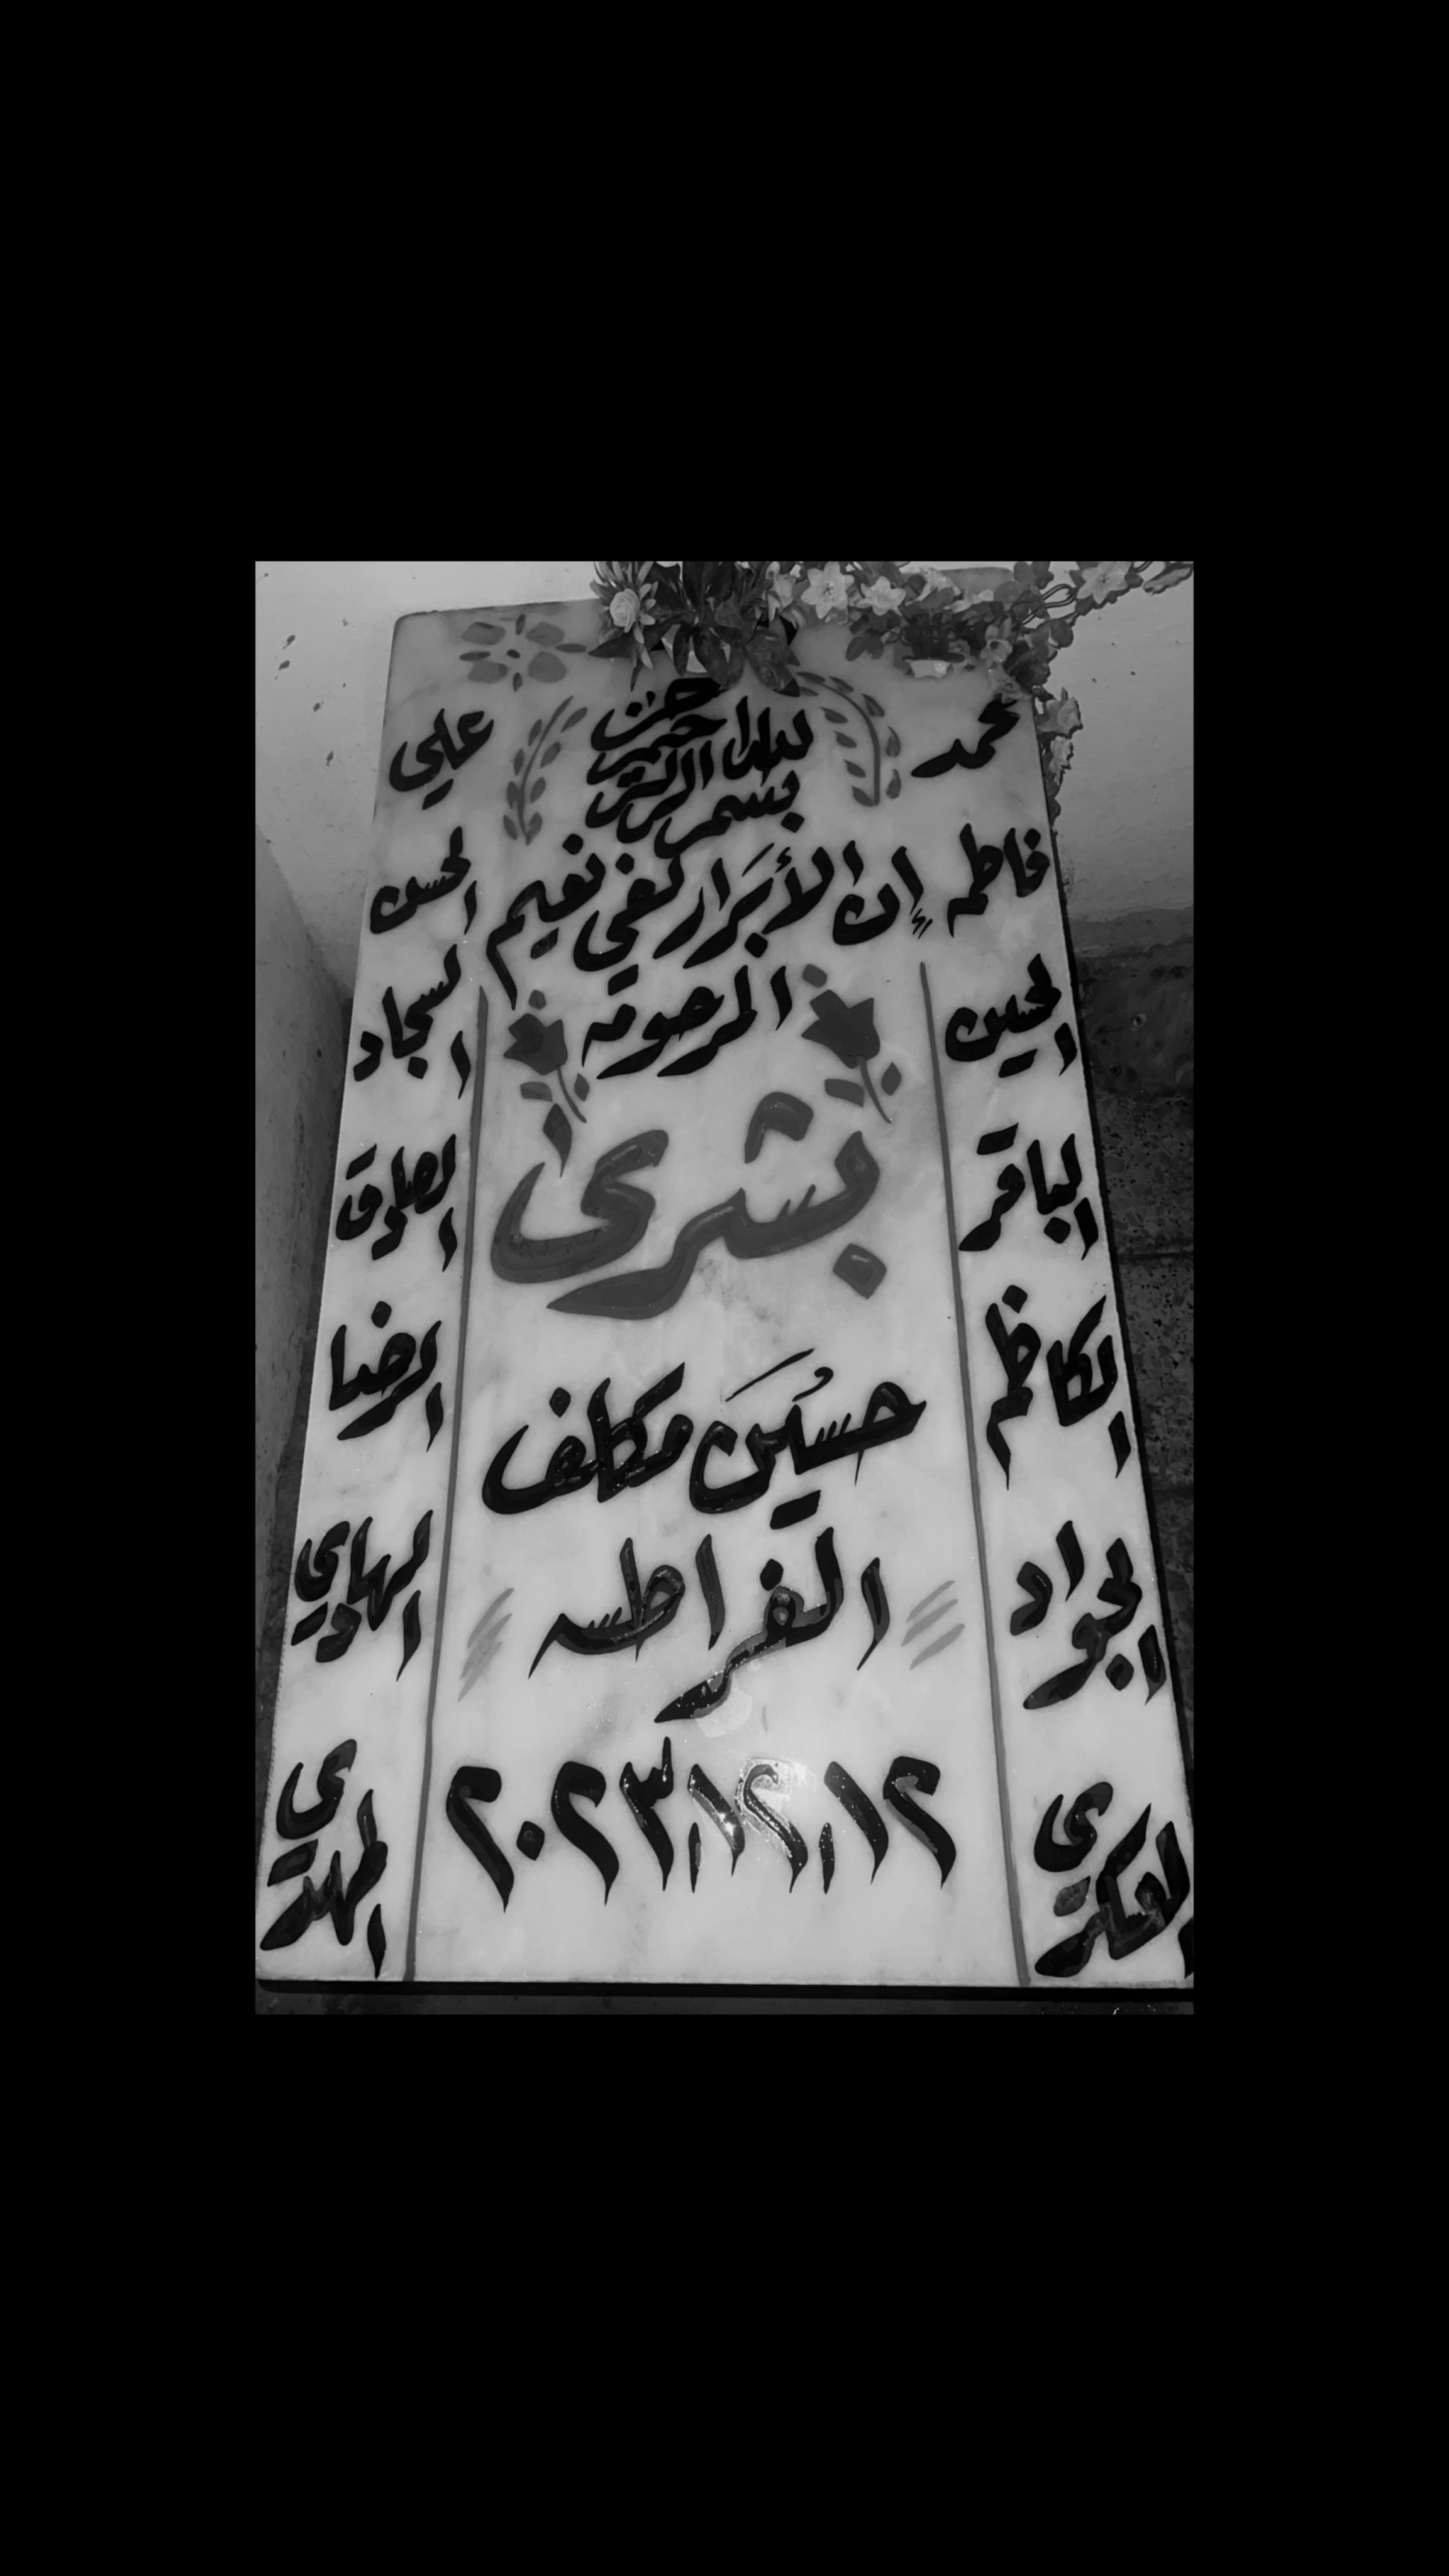 بسم الله الرحمن الرحيم
محمد
علي
إن الأبرار لفي نعيم
فاطمه
الحسن
المرحومه
الحسين
السجاد
بشرى
الباقر
الصادق
حسين مكلف
الكاظم
الرضا
الفراطسه
الجواد
الهادي
٢٠٢٣،١٢،١٢
العسكري
المهدي